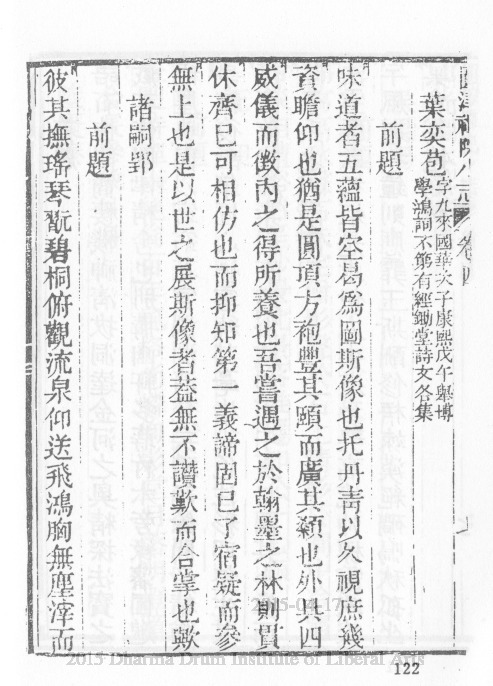 葉奕苞字九來國華次子康熙戊午舉博
學鴻詞不第有經鋤堂詩文各集
前題
味道者五蘊皆空曷為圖斯像也托丹青以久視庶幾
資瞻仰也猶是圓頂方袍豐其頤而廣其顙也外具四
威儀而徵內之得所養也吾嘗遇之於翰墨之林則貫
休齊已可相仿也而抑知第一義諦固已了宿疑而參
無上也是以世之展斯像者葢無不讚歎而合掌也歟
諸嗣郢
前題
彼其撫瑤琴翫碧桐俯觀流泉仰送飛鴻胸無塵滓而
2015-04-17
2015 Dharma Drum Institute of Liberal Arts
122